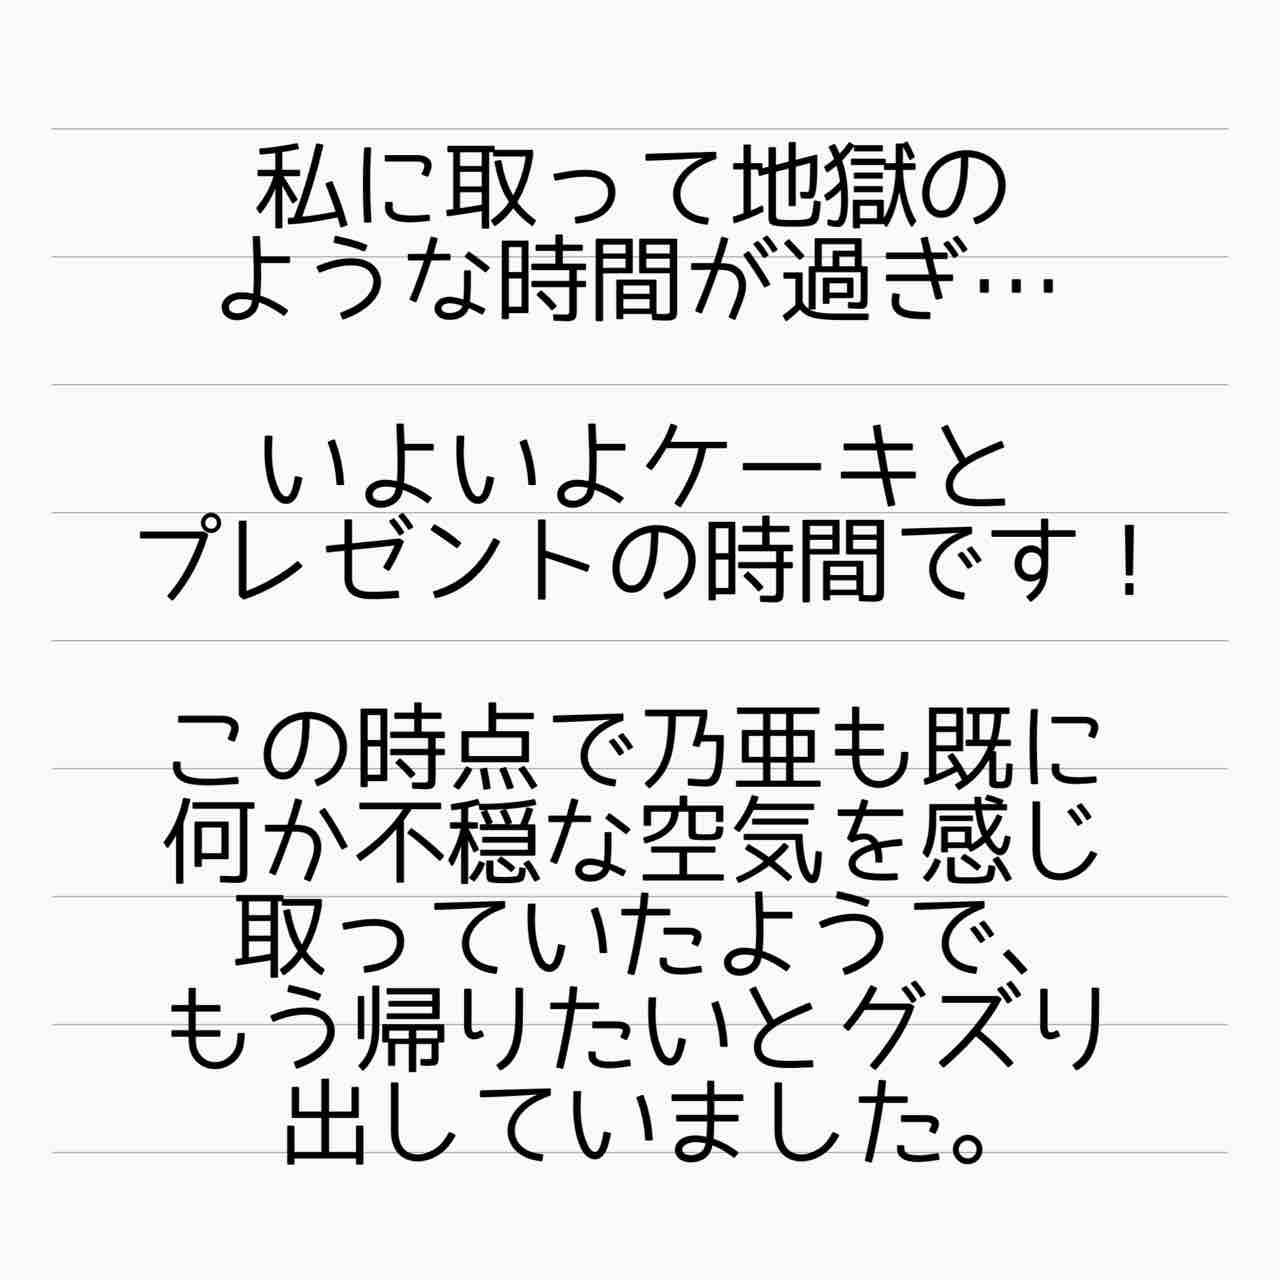 私に取って地獄の
ような時間が過ぎ…
いよいよケーキと
プレゼントの時間です！
この時点で乃亜も既に
何か不穏な空気を感じ
取っていたようで、
もう帰りたいとグズり
出していました。